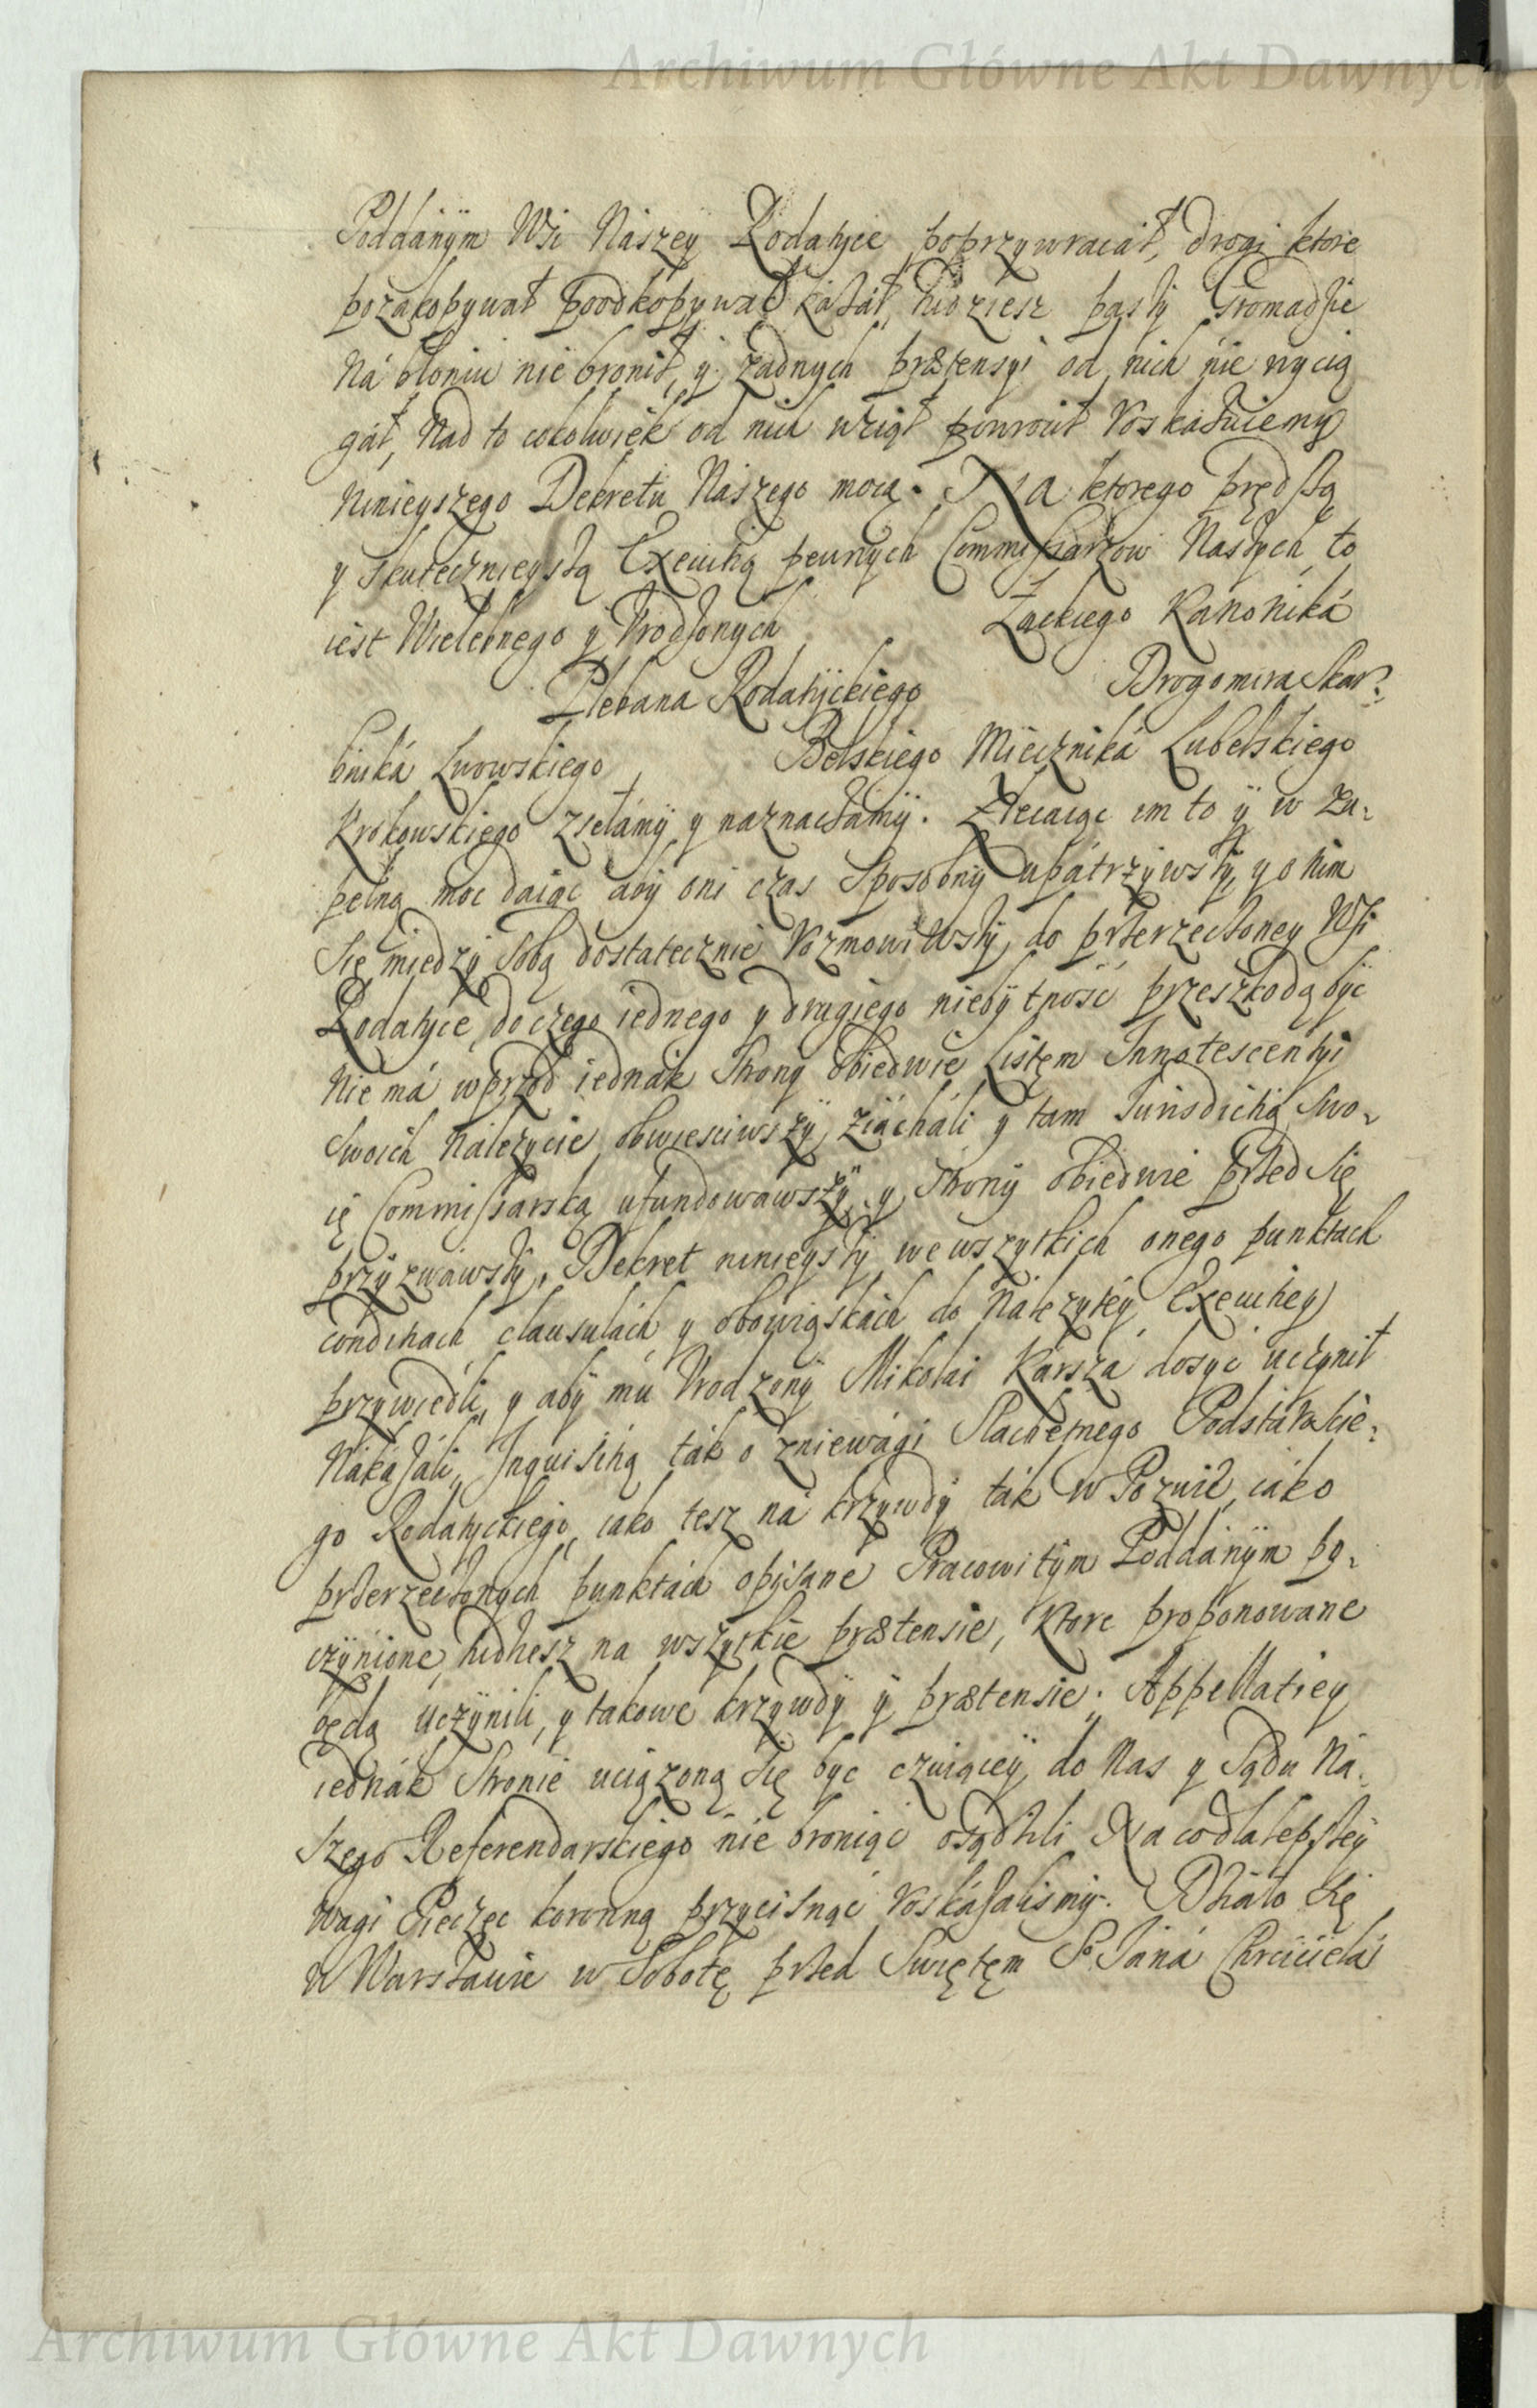 Archiwum Główne Akt Dawnych
Poddánÿm Wsi Nászey Rodatÿcze poprzywracáł, drogi ktore
pozákopywał poodkopywáć kazáł, tudziesz pászy Gromadzie
Ná błoniu nie bronił, ÿ żadnych prætensyi od nich nie wycią
gáł, Nad to cokolwiek od nich wziął powrocił Roskazuiemy
Ninieyszego Dekretu Nászego mocą. Dla ktorego prędszą
y skutecznieyszą Exekutią pewnych Commissarzow Nászych, to
iest Wielebnego y Urodzonych Żackiego Kánoniká
Plebana Rodatÿckiego Drogomira Skar:
bniká Lwowskiego, Bełskiego Miecżniká Lubelskiego
Krokowskiego zsełámÿ y náznaczámÿ. Zlecaiąc im to ÿ w zu:
pełną moc daiąc abÿ oni czas sposobnÿ upátrzÿwszÿ, y o nim
się międzÿ sobą dostatecznie rozmowiwszÿ, do przerzeczoney Wsi
Rodatÿcze, do czego iednego y drugiego niebÿtność przeszkodą bÿc
Nie má wprzod iednák Strony obiedwie Listem Innotescentÿi
Swoich náleżycie obwiesciwszÿ, ziácháli y tam Iurisdictią Swo:
ię Commissarską ufundowáwszÿ, y Stronÿ obiedwie przed się
przÿzwáwszÿ, Dekret ninieyszÿ we wszytkich onego punktach
conditiach clausulách y obowiąskách do Należÿtéy Exekutiey
przÿwiedli, y abÿ mu Urodzonÿ Mikołai Kársza dosyć uczynił
Nákázáli, Inquisitią ták o zniewági Slachetnego Podstároscie:
go Rodatÿckiego, iáko tesz ná krzÿwdÿ ták w Pozwie, iáko
przerzeczonych punktách opisáne Pracowitÿm Poddánÿm po:
czÿnione, tudziesz na wszÿtkie prætensie, ktore proponowane
będą uczÿnili, y takowe krzÿwdÿ ÿ prætensie. Appellatiey
iednák Stronie uciążoną się być czuiąceÿ, do Nas y Sądu Ná:
szego Referendarskiego nie broniąc osądzili Na co dla lepszeÿ
wagi Pieczęc koronną przÿcisnąć Roskázalismÿ. Działo się
w Warszawie w Sobotę przed Swiętem S° Jáná Chrzciciela
Archiwum Główne Akt Dawnych